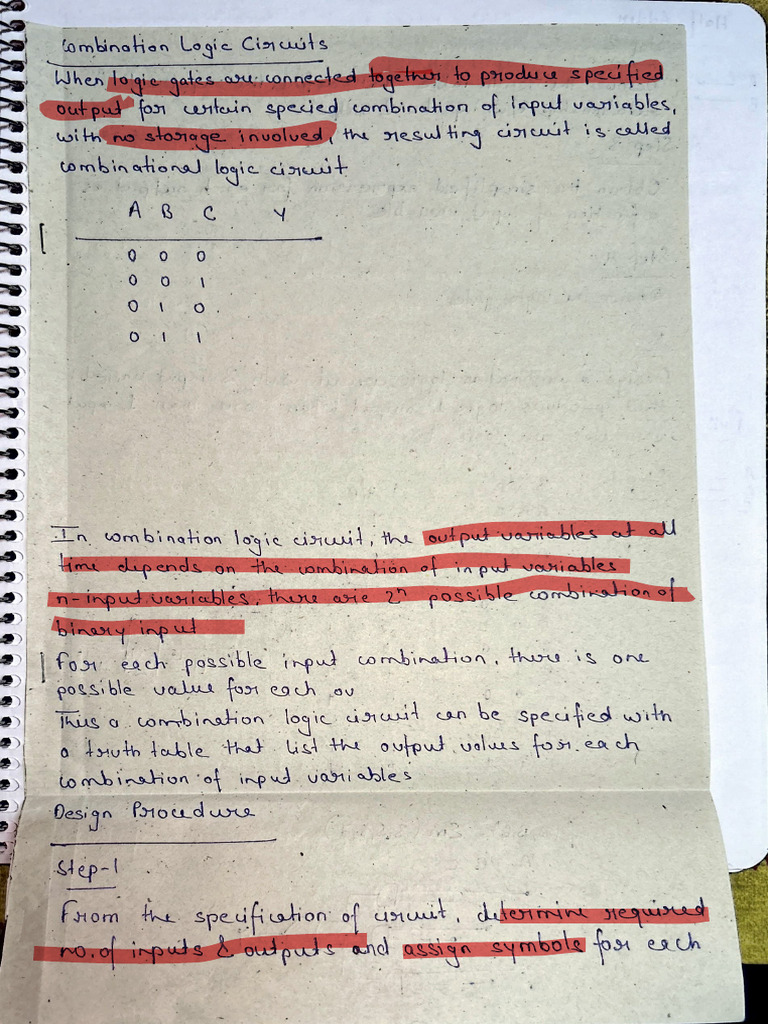 Combination Logic Circuits
When logic gates are connected together to produce specified
output for certain specied combination of input variables,
with no storage involved, the resulting circuit is called
combinational logic circuit
A B C Y
0 0 0
0 0 1
0 1 0
0 1 1
In combination logic circuit, the output variables at all
time depends on the combination of input variables
n-input variables, there are 2ⁿ possible combination of
binary input
For each possible input combination, there is one
possible value for each ov
Thus a combination logic circuit can be specified with
a truth table that list the output values for each
combination of input variables
Design Procedure
Step-1
From the specification of circuit, determine required
no. of inputs & outputs and assign symbols for each